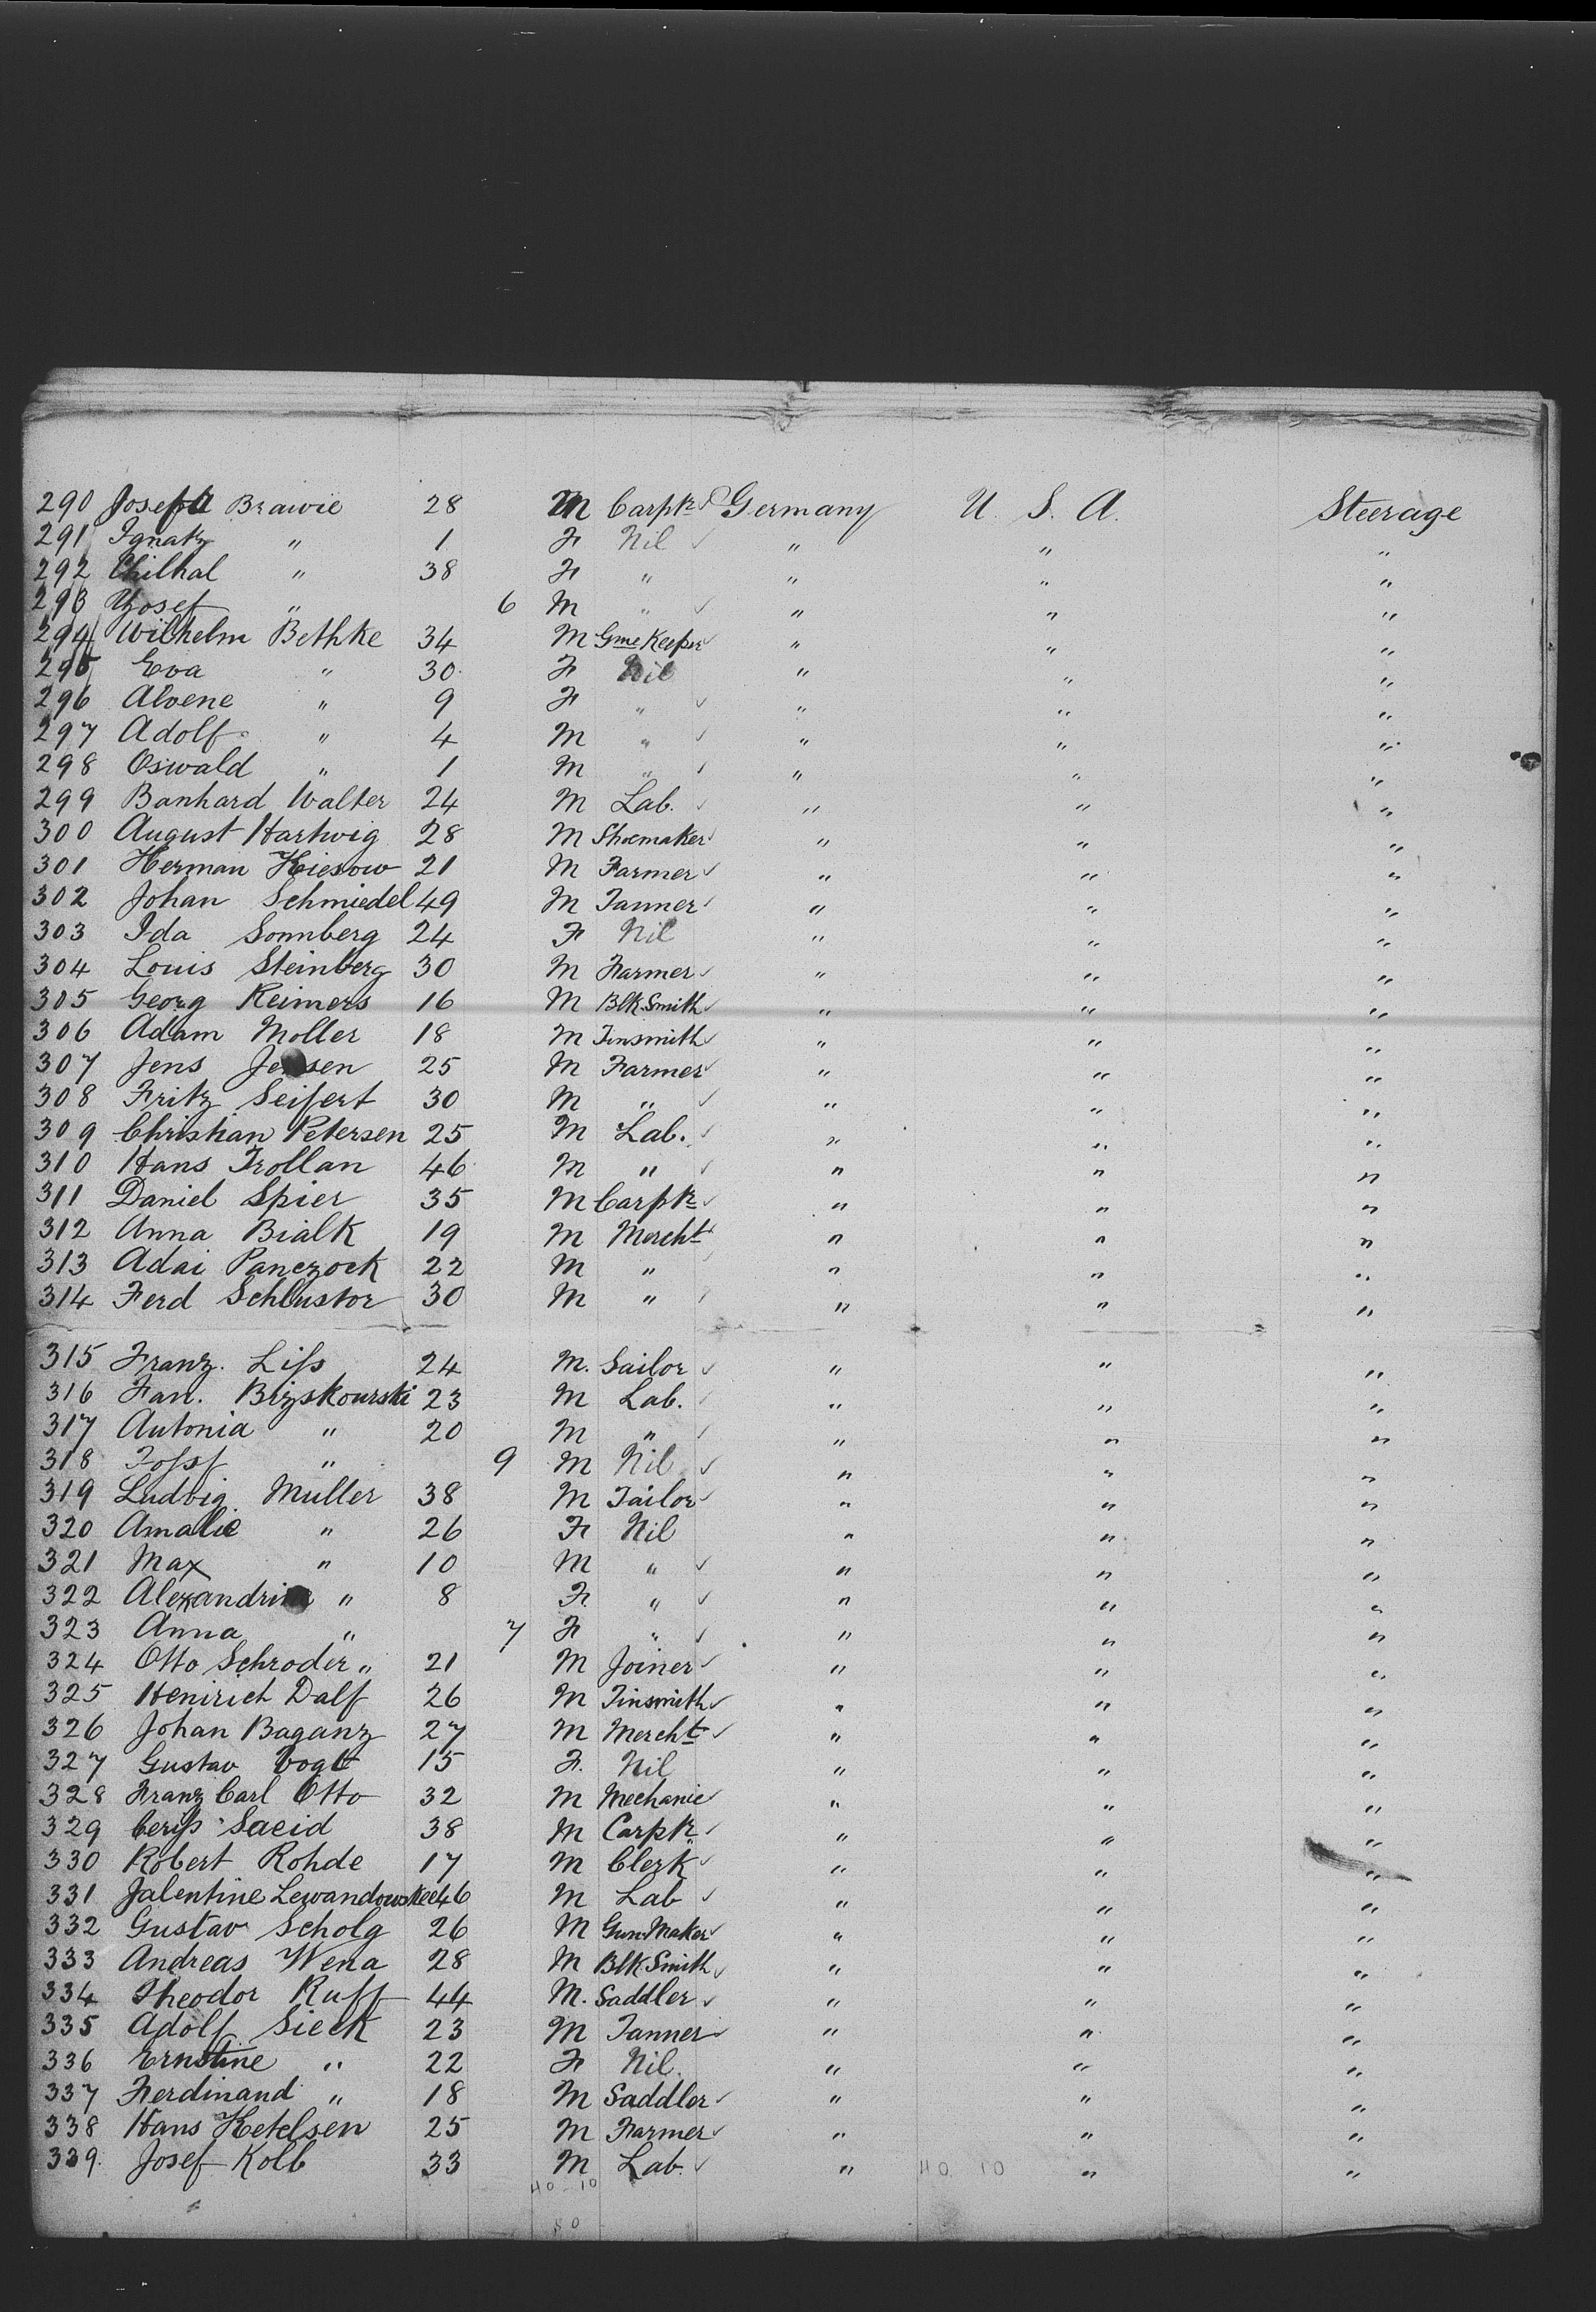 290 Josefa Brawie 28 M Carptr Germany U. S. A. Steerage
291 Ignatz " 1 F Nil " " "
292 Chilhal " 38 F " " " "
293 Yosef " 6 M " " " "
294 Wilhelm Bethke 34 M Gme Keeper " " "
295 Eva " 30 F Nil " " "
296 Alvene " 9 F " " " "
297 Adolf " 4 M " " " "
298 Oswald " 1 M " " " "
299 Banhard Walter 24 M Lab. " " "
300 August Hartwig 28 M Shoemaker " " "
301 Herman Kiesow 21 M Farmer " " "
302 Johan Schmiedel 49 M Tanner " " "
303 Ida Sonnberg 24 F Nil " " "
304 Louis Steinberg 30 M Farmer " " "
305 Georg Reimers 16 M Blk Smith " " "
306 Adam Moller 18 M Tinsmith " " "
307 Jens Jensen 25 M Farmer " " "
308 Fritz Seifert 30 M " " " "
309 Christian Petersen 25 M Lab. " " "
310 Hans Trollan 46 M " " " "
311 Daniel Spier 35 M Carptr " " "
312 Anna Bialk 19 M Mercht " " "
313 Adai Panczock 22 M " " " "
314 Ferd Schlustor 30 M " " " "
315 Franz. Liss 24 M. Sailor " " "
316 Fan. Bizskourski 23 M Lab. " " "
317 Autonia " 20 M " " " "
318 Jossf " 9 M Nil " " "
319 Ludvig Muller 38 M Tailor " " "
320 Amalie " 26 F Nil " " "
321 Max " 10 M " " " "
322 Alexandrine " 8 F. " " " "
323 Anna " 7 F " " " "
324 Otto Schroder " 21 M Joiner " " "
325 Henirich Dalf 26 M Tinsmith " " "
326 Johan Baganz 27 M Mercht " " "
327 Gustav Vogt 15 F. Nil " " "
328 Franz Carl Otto 32 M Mechanic " " "
329 Saeid 38 M Carptr " " "
330 Robert Rohde 17 M Clerk " " "
331 Jalentine Lewandowskee 46 M Lab " " "
332 Gustav Scholg 26 M Gun Maker " " "
333 Andreas Wena 28 M Blk Smith " " "
334 Theodor Ruff 44 M. Saddler " " "
335 Adolf Sieck 23 M Tanner " " "
336 Ernstine " 22 F Nil. " " "
337 Ferdinand " 18 M Saddler " " "
338 Hans Ketelsen 25 M Farmer " " "
339. Josef Kolb 33 M Lab. " 40 10 " "
40-10
50